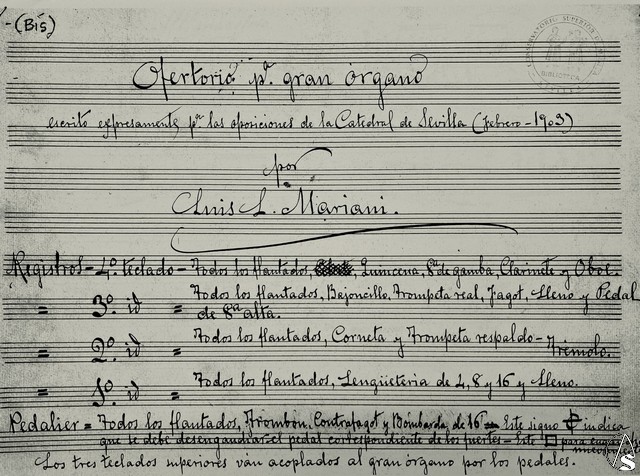 -(Bis)
Ofertorio pª. gran órgano
escrito expresamente pª las oposiciones de la Catedral de Sevilla (Febrero - 1903)
por
Luis L. Mariani.
Registros - 4º. teclado - Todos los flautados, Quincena, 8ª de gamba, Clarinete y Oboe.
= 3º. id = Todos los flautados, Bajoncillo, Trompeta real, Fagot, Lleno y Pedal
de 8ª alta.
= 2º. id = Todos los flautados, Corneta y Trompeta respaldo - Trémolo.
= 1º. id = Todos los flautados, Lengüeteria de 4, 8 y 16 y Lleno.
Pedalier = Todos los flautados, Trombon, Contrafagot y Bombarda de 16 - Este signo indica
que se debe desenganchar el pedal correspondiente de los fuertes - Este para enganchar
Los tres teclados superiores van acoplados al gran órgano por los pedales.